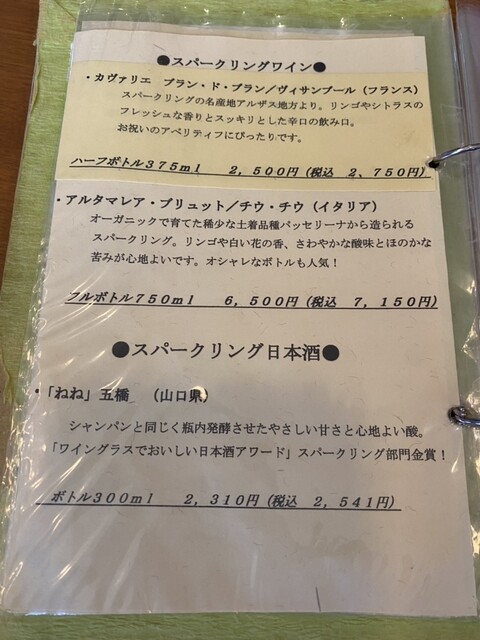 ●スパークリングワイン●
・カヴァリエ　ブラン・ド・ブラン／ヴィサンブール（フランス）
スパークリングの名産地アルザス地方より。リンゴやシトラスの
フレッシュな香りとスッキリとした辛口の飲み口。
お祝いのアペリティフにぴったりです。
ハーフボトル３７５ｍｌ　２，５００円（税込　２，７５０円）
・アルタマレア・ブリュット／チウ・チウ（イタリア）
オーガニックで育てた稀少な土着品種パッセリーナから造られる
スパークリング。リンゴや白い花の香、さわやかな酸味とほのかな
苦みが心地よいです。オシャレなボトルも人気！
フルボトル７５０ｍｌ　６，５００円（税込　７，１５０円）
●スパークリング日本酒●
・「ねね」五橋　（山口県）
シャンパンと同じく瓶内発酵させたやさしい甘さと心地よい酸。
「ワイングラスでおいしい日本酒アワード」スパークリング部門金賞！
ボトル３００ｍｌ　２，３１０円（税込　２，５４１円）